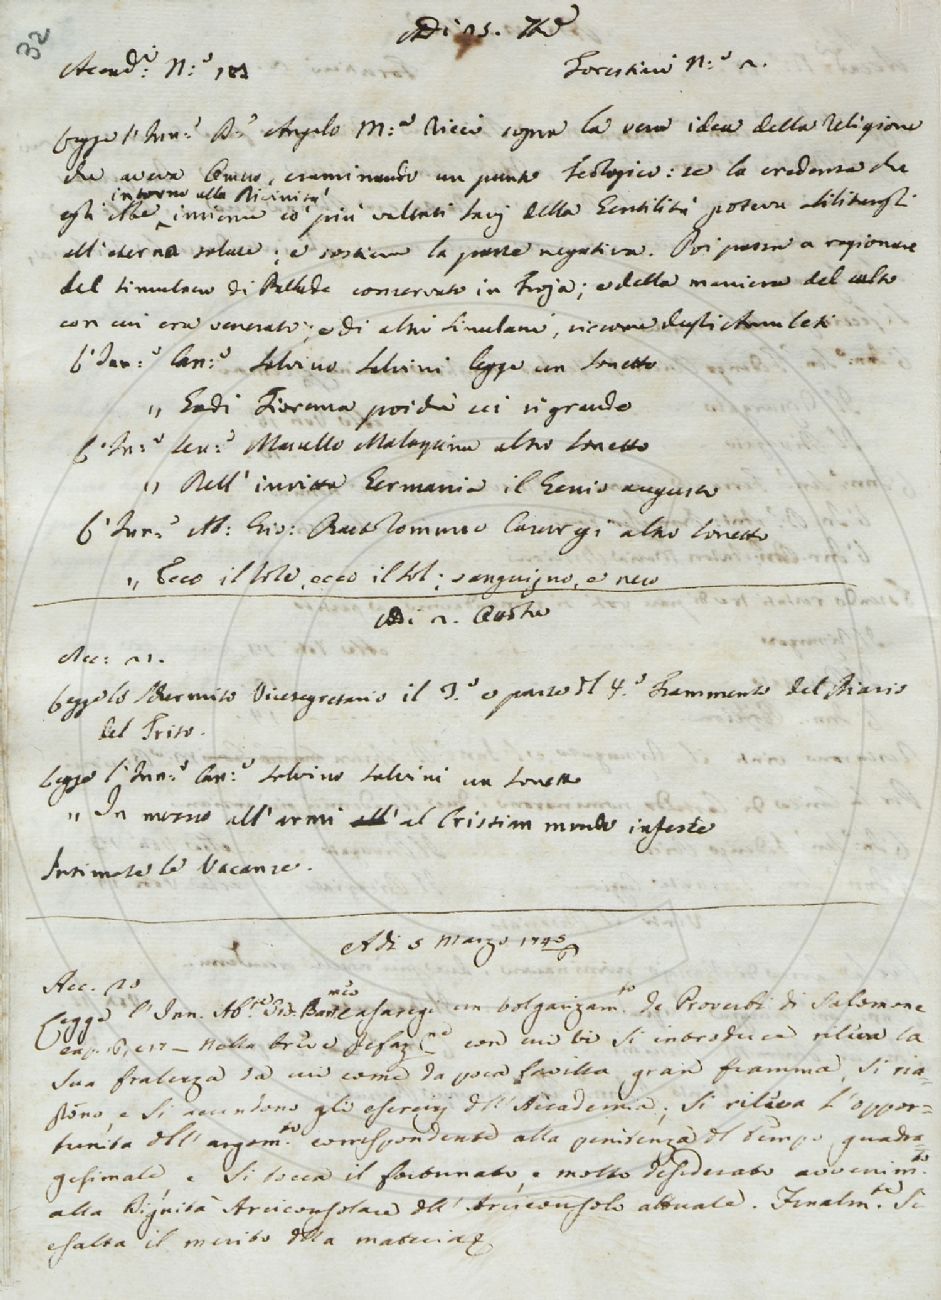 32
Adi 25. 7bre
Accadi: N:o 183
Forestieri N:o 2.
Legge l'Inn:o D:r Angelo M:a Ricci sopra la vera idea della Religione
che aveva Omero, esaminando un punto teologico: se la credenza che
intorno alla Divinità
egli ebbe insieme co' più saggi della Gentilità poteva abilitargli
all'eterna salute; e sostiene la parte negativa. Poi passa a ragionare
del simulacro di Pallade conservato in Troja; e della maniera del culto
con cui era venerato; e di altri simulacri, siccome degli Amuleti
L'Inn:o Can:o Salvino Salvini legge un Sonetto
" Godi Fiorenza poiché sei sì grande
L'In:o Sen:e Marcello Malaspina altro Sonetto
" Dell'invitta Germania il Genio augusto
L'Inn:o Ab: Gio: Bartolommeo Casaregi altro Sonetto
" Ecco il sole, ecco il sol; sanguigno, e nero
Adi 2. Ottobre
Acc: 21.
Legge lo Schermito Vicesegretario il 3.o e parte del 4.o Frammento del Diario
del Trito.
Legge l'Inn:o Can:o Salvino Salvini un Sonetto
" In mezzo all'armi al Cristian mondo infeste
Intimate le Vacanze.
Adi 5 Marzo 1745
Acc. 20
Legge l'Inn. Ab.te Gio: Bartmeo Casaregi un volgarizam.to de Proverbi di Salomone
cap. e 17 _ Nella breve Prefaz.ne con cui vi si introduce rileva la
sua fralezza da cui come da poca favilla gran fiamma, si ria=
ssono, e si accendono gli esercizj dell'Accademia; si rileva l'oppor=
tunità dell'argom.to corrispondente alla penitenza del Tempo quadra=
gesimale, e si tocca il fortunato, e molto desiderato avvenim.to
alla Dignità Arciconsolare dell'Arciconsolo attuale. Finalm.te si
esalta il merito della materia